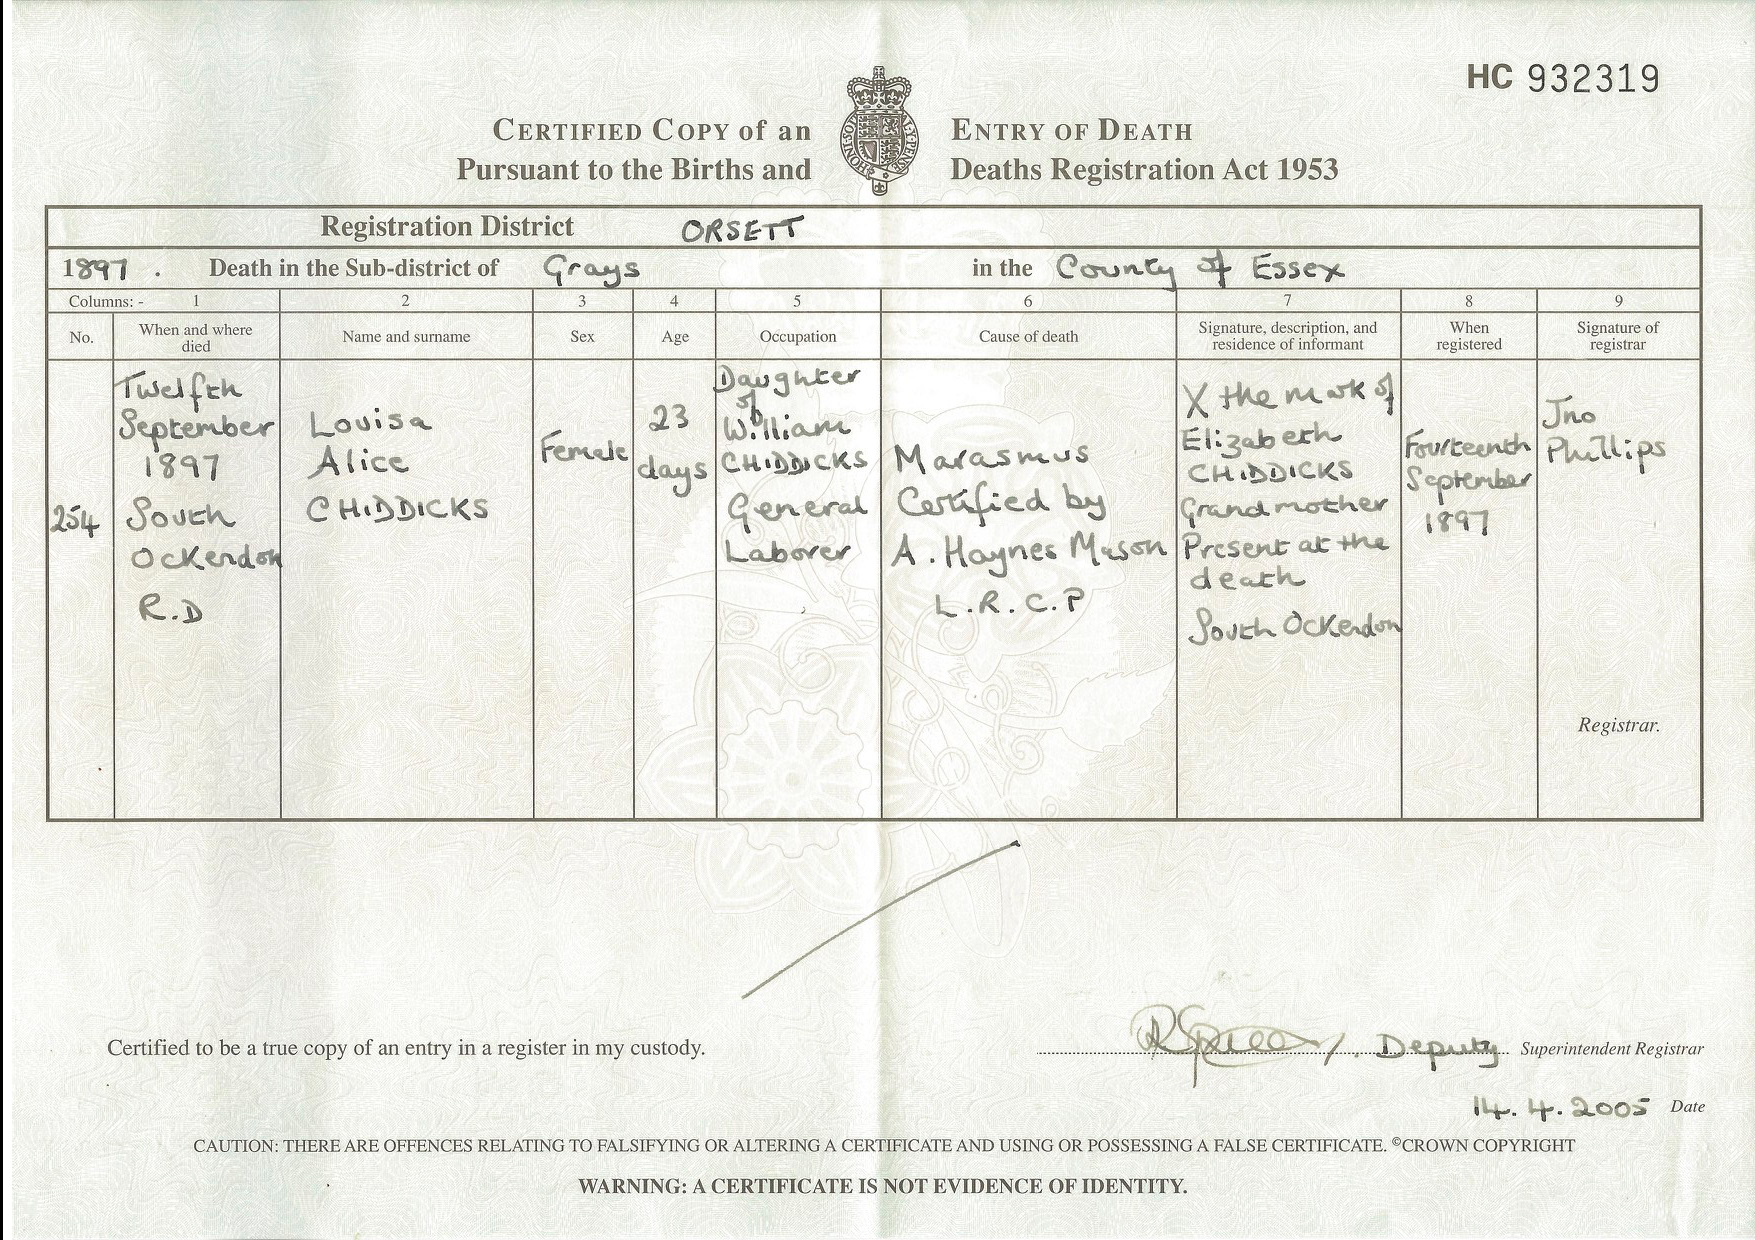 HC 932319
CERTIFIED COPY of an ENTRY OF DEATH
Pursuant to the Births and Deaths Registration Act 1953
HONI SOIT QUI MAL Y PENSE
Registration District ORSETT
1897 . Death in the Sub-district of Grays in the County of Essex
Columns: - 1 2 3 4 5 6 7 8 9
No.
When and where
died
Name and surname
Sex
Age
Occupation
Cause of death
Signature, description, and
residence of informant
When
registered
Signature of
registrar
254
Twelfth
September
1897
South
Ockendon
R.D
Louisa
Alice
CHIDDICKS
Female
23
days
Daughter
of
William
CHIDDICKS
General
Laborer
Marasmus
Certified by
A. Haynes Mason
L.R.C.P
X the mark of
Elizabeth
CHIDDICKS
Grandmother
Present at the
death
South Ockendon
Fourteenth
September
1897
Jno
Phillips
Registrar.
Certified to be a true copy of an entry in a register in my custody.
Deputy Superintendent Registrar
14.4.2005 Date
CAUTION: THERE ARE OFFENCES RELATING TO FALSIFYING OR ALTERING A CERTIFICATE AND USING OR POSSESSING A FALSE CERTIFICATE. ©CROWN COPYRIGHT
WARNING: A CERTIFICATE IS NOT EVIDENCE OF IDENTITY.